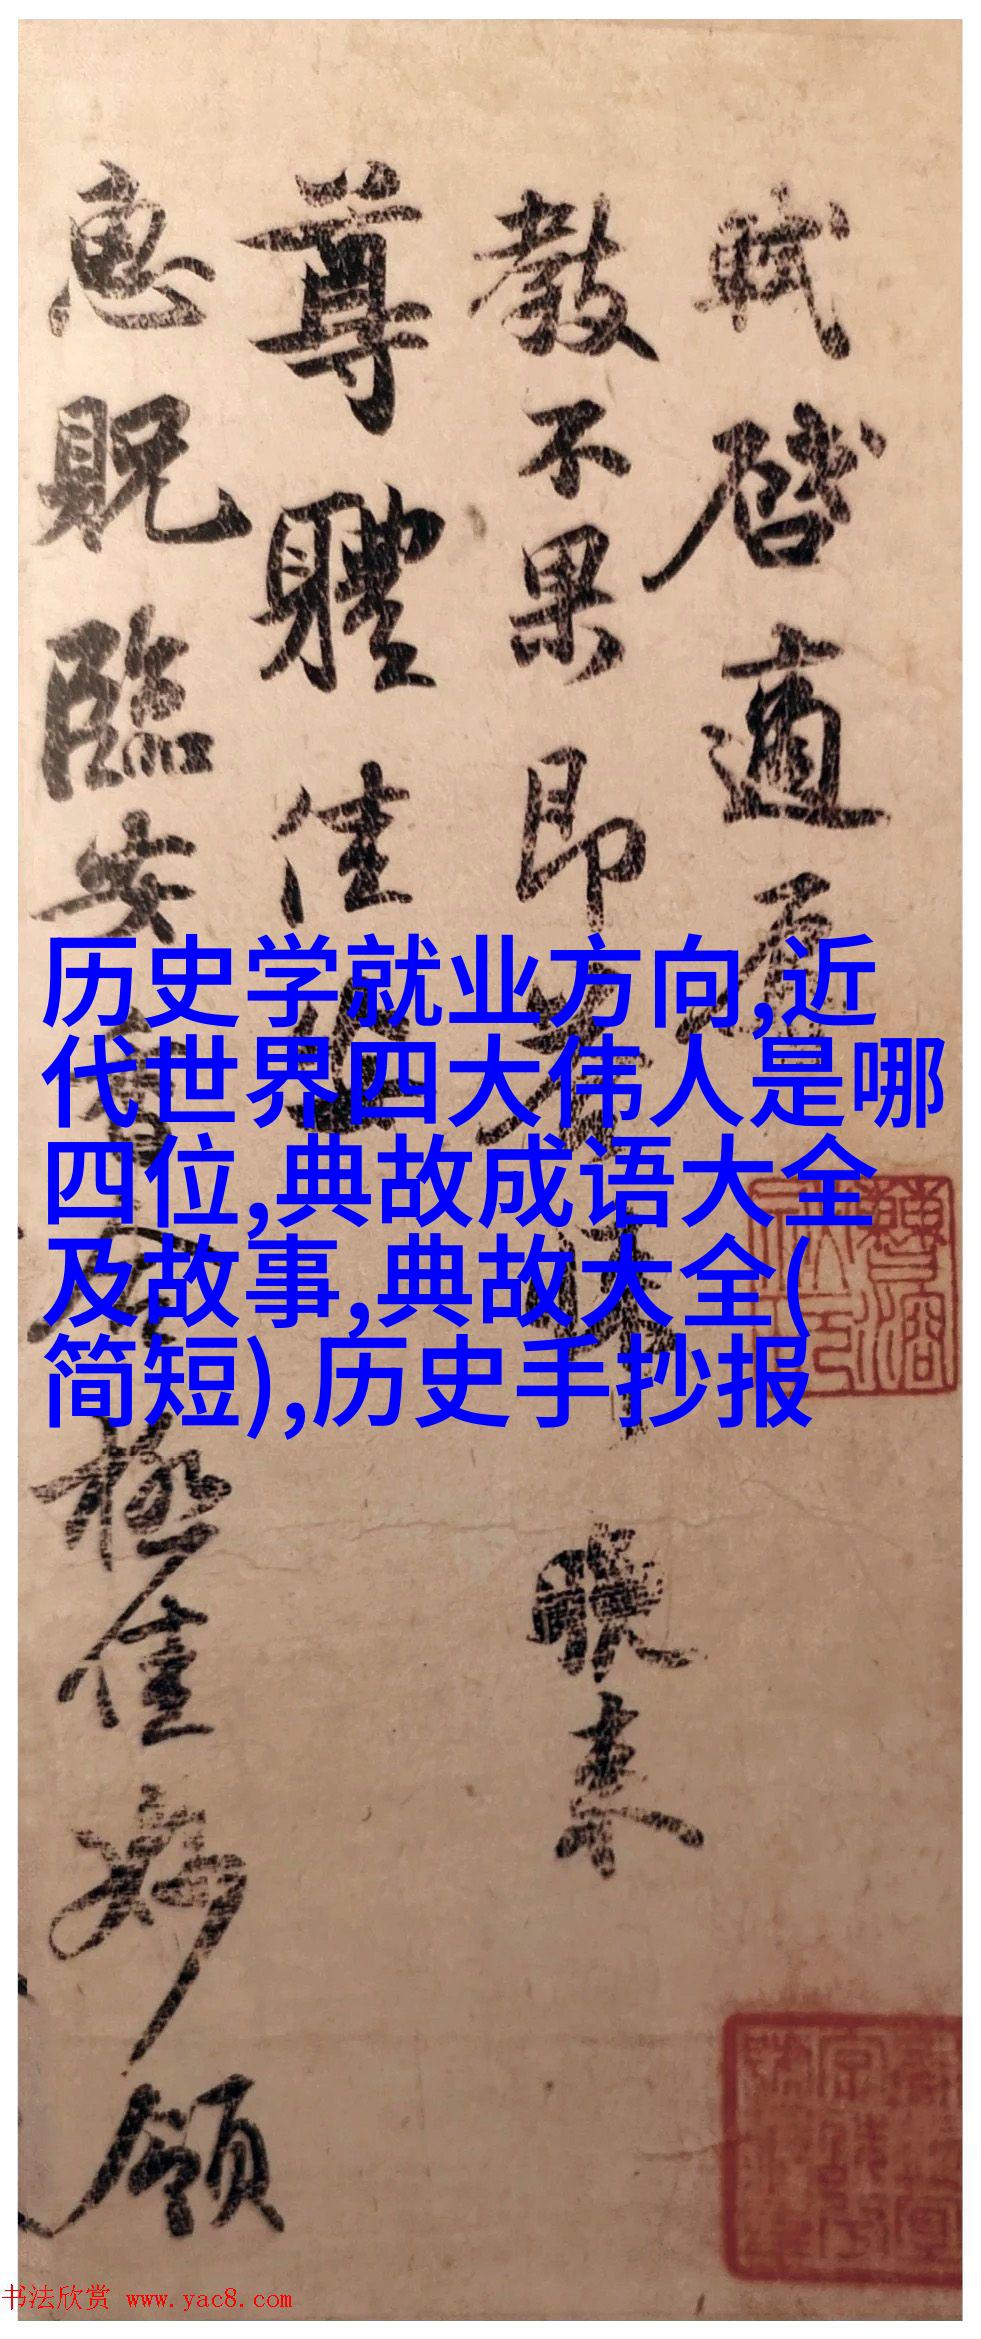 軾啓適辱
教不果即答
晚来
尊體佳勝
惠貺臨安香合極佳妙領
历史学就业方向,近
代世界四大伟人是哪
四位,典故成语大全
及故事,典故大全(
简短),历史手抄报
书法欣赏 www.yac8.com